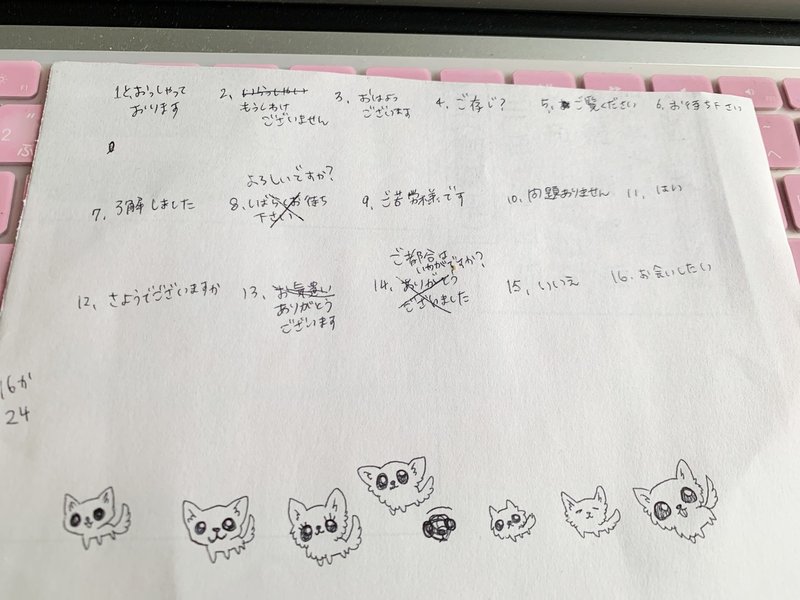 1と、おっしゃって
おります
2、いらっしゃい
もうしわけ
ございません
3、おはよう
ございます
4、ご存じ?
5、ご覧ください
6、お待ち下さい
7、了解しました
よろしいですか?
8、しばらくお待ち
下さい
9、ご苦労様です
10、問題ありません
11、はい
12、さようでございますか
13、お気遣い
ありがとう
ございます
ご都合は
いかがですか?
14、ありがとう
ございました
15、いいえ
16、お会いしたい
16か
24